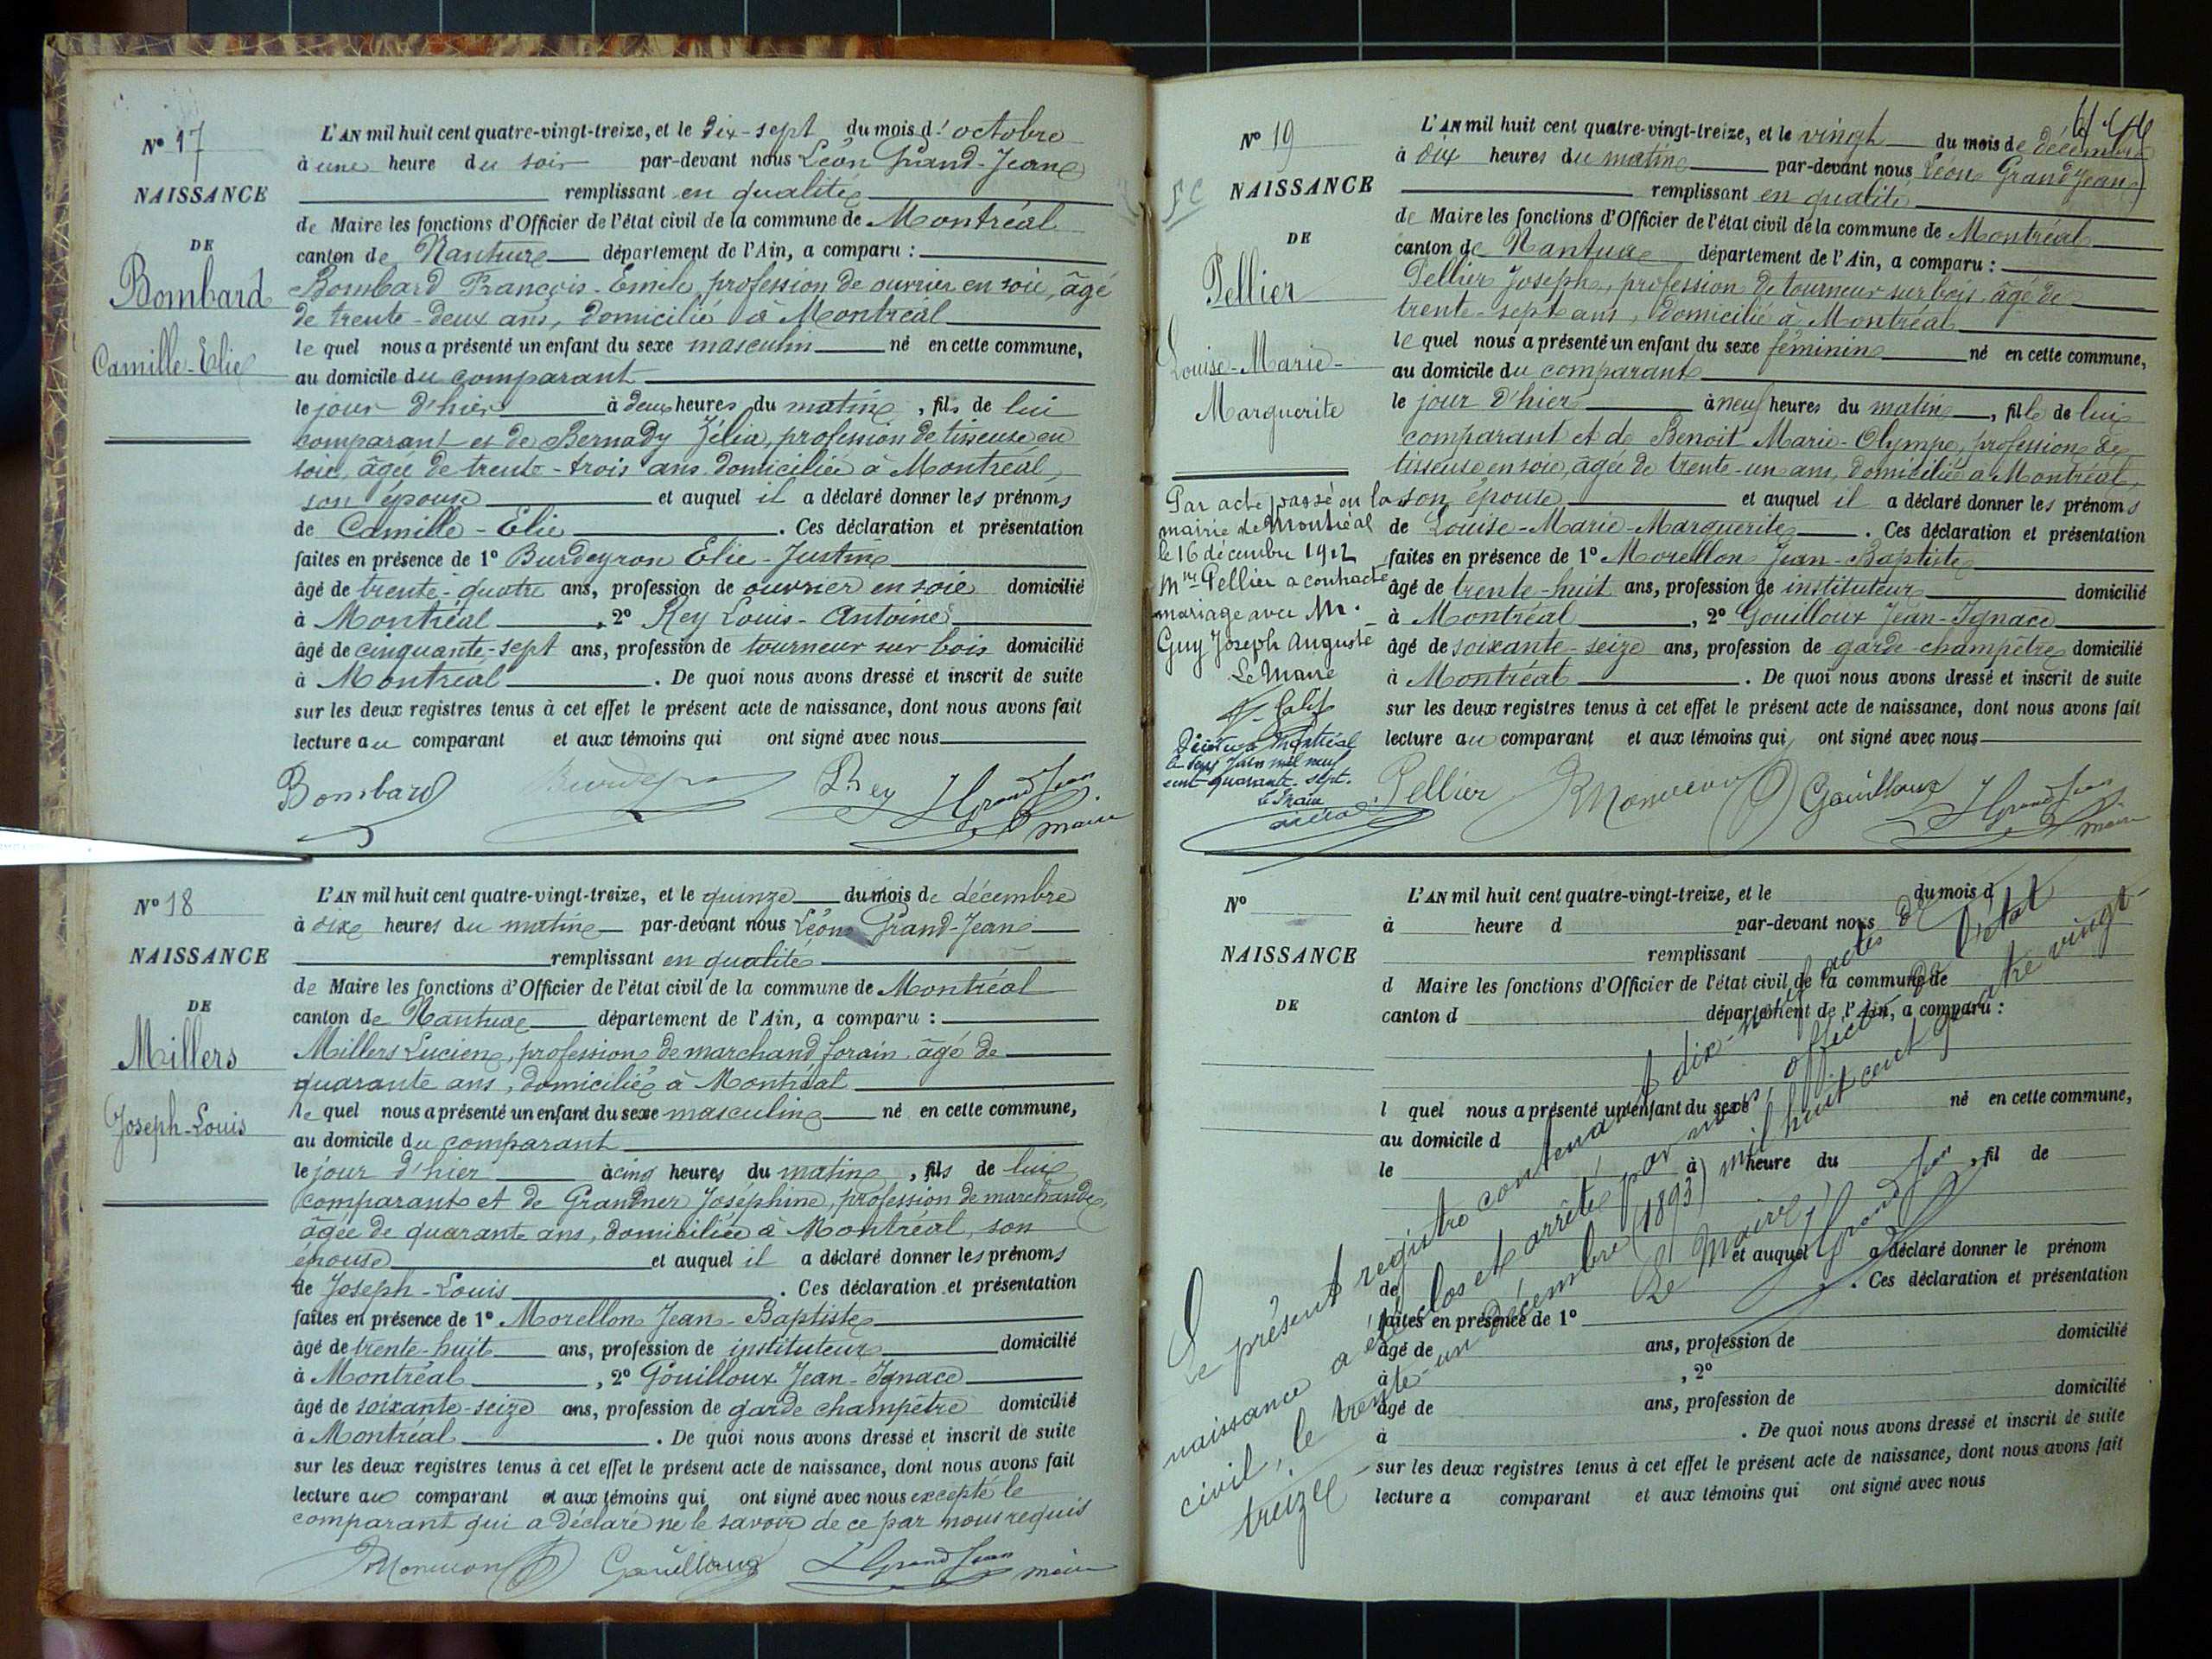 N° 17
NAISSANCE
DE
Bombard
Camille-Elie
L'AN mil huit cent quatre-vingt-treize, et le dix-sept du mois d'octobre
à une heure du soir par-devant nous Léon Grand-Jean
remplissant en qualité
de Maire les fonctions d'Officier de l'état civil de la commune de Montréal
canton de Nantua département de l'Ain, a comparu :
Bombard François-Emile, profession de ouvrier en soie, âgé
de trente-deux ans, domicilié à Montréal
le quel nous a présenté un enfant du sexe masculin né en cette commune,
au domicile du comparant
le jour d'hier à deux heures du matin, fils de lui
comparant et de Bernady Zélia, profession de tisseuse en
soie, âgée de trente-trois ans domiciliée à Montréal,
son épouse et auquel il a déclaré donner les prénoms
de Camille-Elie. Ces déclaration et présentation
faites en présence de 1° Burdeyron Elie-Justin
âgé de trente-quatre ans, profession de ouvrier en soie domicilié
à Montréal, 2° Rey Louis-Antoine
âgé de cinquante-sept ans, profession de tourneur sur bois domicilié
à Montréal. De quoi nous avons dressé et inscrit de suite
sur les deux registres tenus à cet effet le présent acte de naissance, dont nous avons fait
lecture au comparant et aux témoins qui ont signé avec nous
Bombard Rey LGrandJean
maire
N° 18
NAISSANCE
DE
Millers
Joseph-Louis
L'AN mil huit cent quatre-vingt-treize, et le quinze du mois de décembre
à dix heures du matin par-devant nous Léon Grand-Jean
remplissant en qualité
de Maire les fonctions d'Officier de l'état civil de la commune de Montréal
canton de Nantua département de l'Ain, a comparu :
Millers Lucien, profession de marchand forain, âgé de
quarante ans, domicilié à Montréal
le quel nous a présenté un enfant du sexe masculin né en cette commune,
au domicile du comparant
le jour d'hier à cinq heures du matin, fils de lui
comparant et de Grandner Joséphine, profession de marchande,
âgée de quarante ans, domiciliée à Montréal, son
épouse et auquel il a déclaré donner les prénoms
de Joseph-Louis. Ces déclaration et présentation
faites en présence de 1° Morellon Jean-Baptiste
âgé de trente-huit ans, profession de instituteur domicilié
à Montréal, 2° Gouilloux Jean-Ignace
âgé de soixante-seize ans, profession de garde champêtre domicilié
à Montréal. De quoi nous avons dressé et inscrit de suite
sur les deux registres tenus à cet effet le présent acte de naissance, dont nous avons fait
lecture au comparant et aux témoins qui ont signé avec nous excepté le
comparant qui a déclaré ne le savoir de ce par nous requis
Gouilloux LGrandJean maire
N° 19
NAISSANCE
DE
Pellier
Louise-Marie-
Marguerite
L'AN mil huit cent quatre-vingt-treize, et le vingt du mois de décembre
à dix heures du matin par-devant nous Léon GrandJean
remplissant en qualité
de Maire les fonctions d'Officier de l'état civil de la commune de Montréal
canton de Nantua département de l'Ain, a comparu :
Pellier Joseph, profession de tourneur sur bois, âgé de
trente-sept ans, domicilié à Montréal
le quel nous a présenté un enfant du sexe féminin né en cette commune,
au domicile du comparant
le jour d'hier à neuf heures du matin, fille de lui
comparant et de Benoit Marie-Olympe, profession de
tisseuse en soie, âgée de trente-un ans, domiciliée à Montréal,
son épouse et auquel il a déclaré donner les prénoms
de Louise-Marie-Marguerite. Ces déclaration et présentation
faites en présence de 1° Morellon Jean-Baptiste
âgé de trente-huit ans, profession de instituteur domicilié
à Montréal, 2° Gouilloux Jean-Ignace
âgé de soixante-seize ans, profession de garde-champêtre domicilié
à Montréal. De quoi nous avons dressé et inscrit de suite
sur les deux registres tenus à cet effet le présent acte de naissance, dont nous avons fait
lecture au comparant et aux témoins qui ont signé avec nous
Pellier Gouilloux LGrandJean
maire
Par acte passé en la
mairie de Montréal
le 16 décembre 1912
Mlle Pellier a contracté
mariage avec M.
Guy Joseph Auguste
Le Maire
Montréal
Juin mil neuf
cent quarante-sept.
Le Maire
N°
NAISSANCE
DE
L'AN mil huit cent quatre-vingt-treize, et le du mois d
à heure d par-devant nous
remplissant
d Maire les fonctions d'Officier de l'état civil de la commune de
canton d département de l'Ain, a comparu :
l quel nous a présenté un enfant du sexe né en cette commune,
au domicile d
le à heure du , fil de
et auquel a déclaré donner le prénom
de . Ces déclaration et présentation
faites en présence de 1°
âgé de ans, profession de domicilié
à , 2°
âgé de ans, profession de domicilié
à . De quoi nous avons dressé et inscrit de suite
sur les deux registres tenus à cet effet le présent acte de naissance, dont nous avons fait
lecture a comparant et aux témoins qui ont signé avec nous
Le présent registre contenant dix-neuf actes de
naissance a été clos et arrêté par nous, officier de l'état
civil, le trente-un décembre mil huit cent quatre vingt-
treize (1893)
Le Maire,
LGrandJean